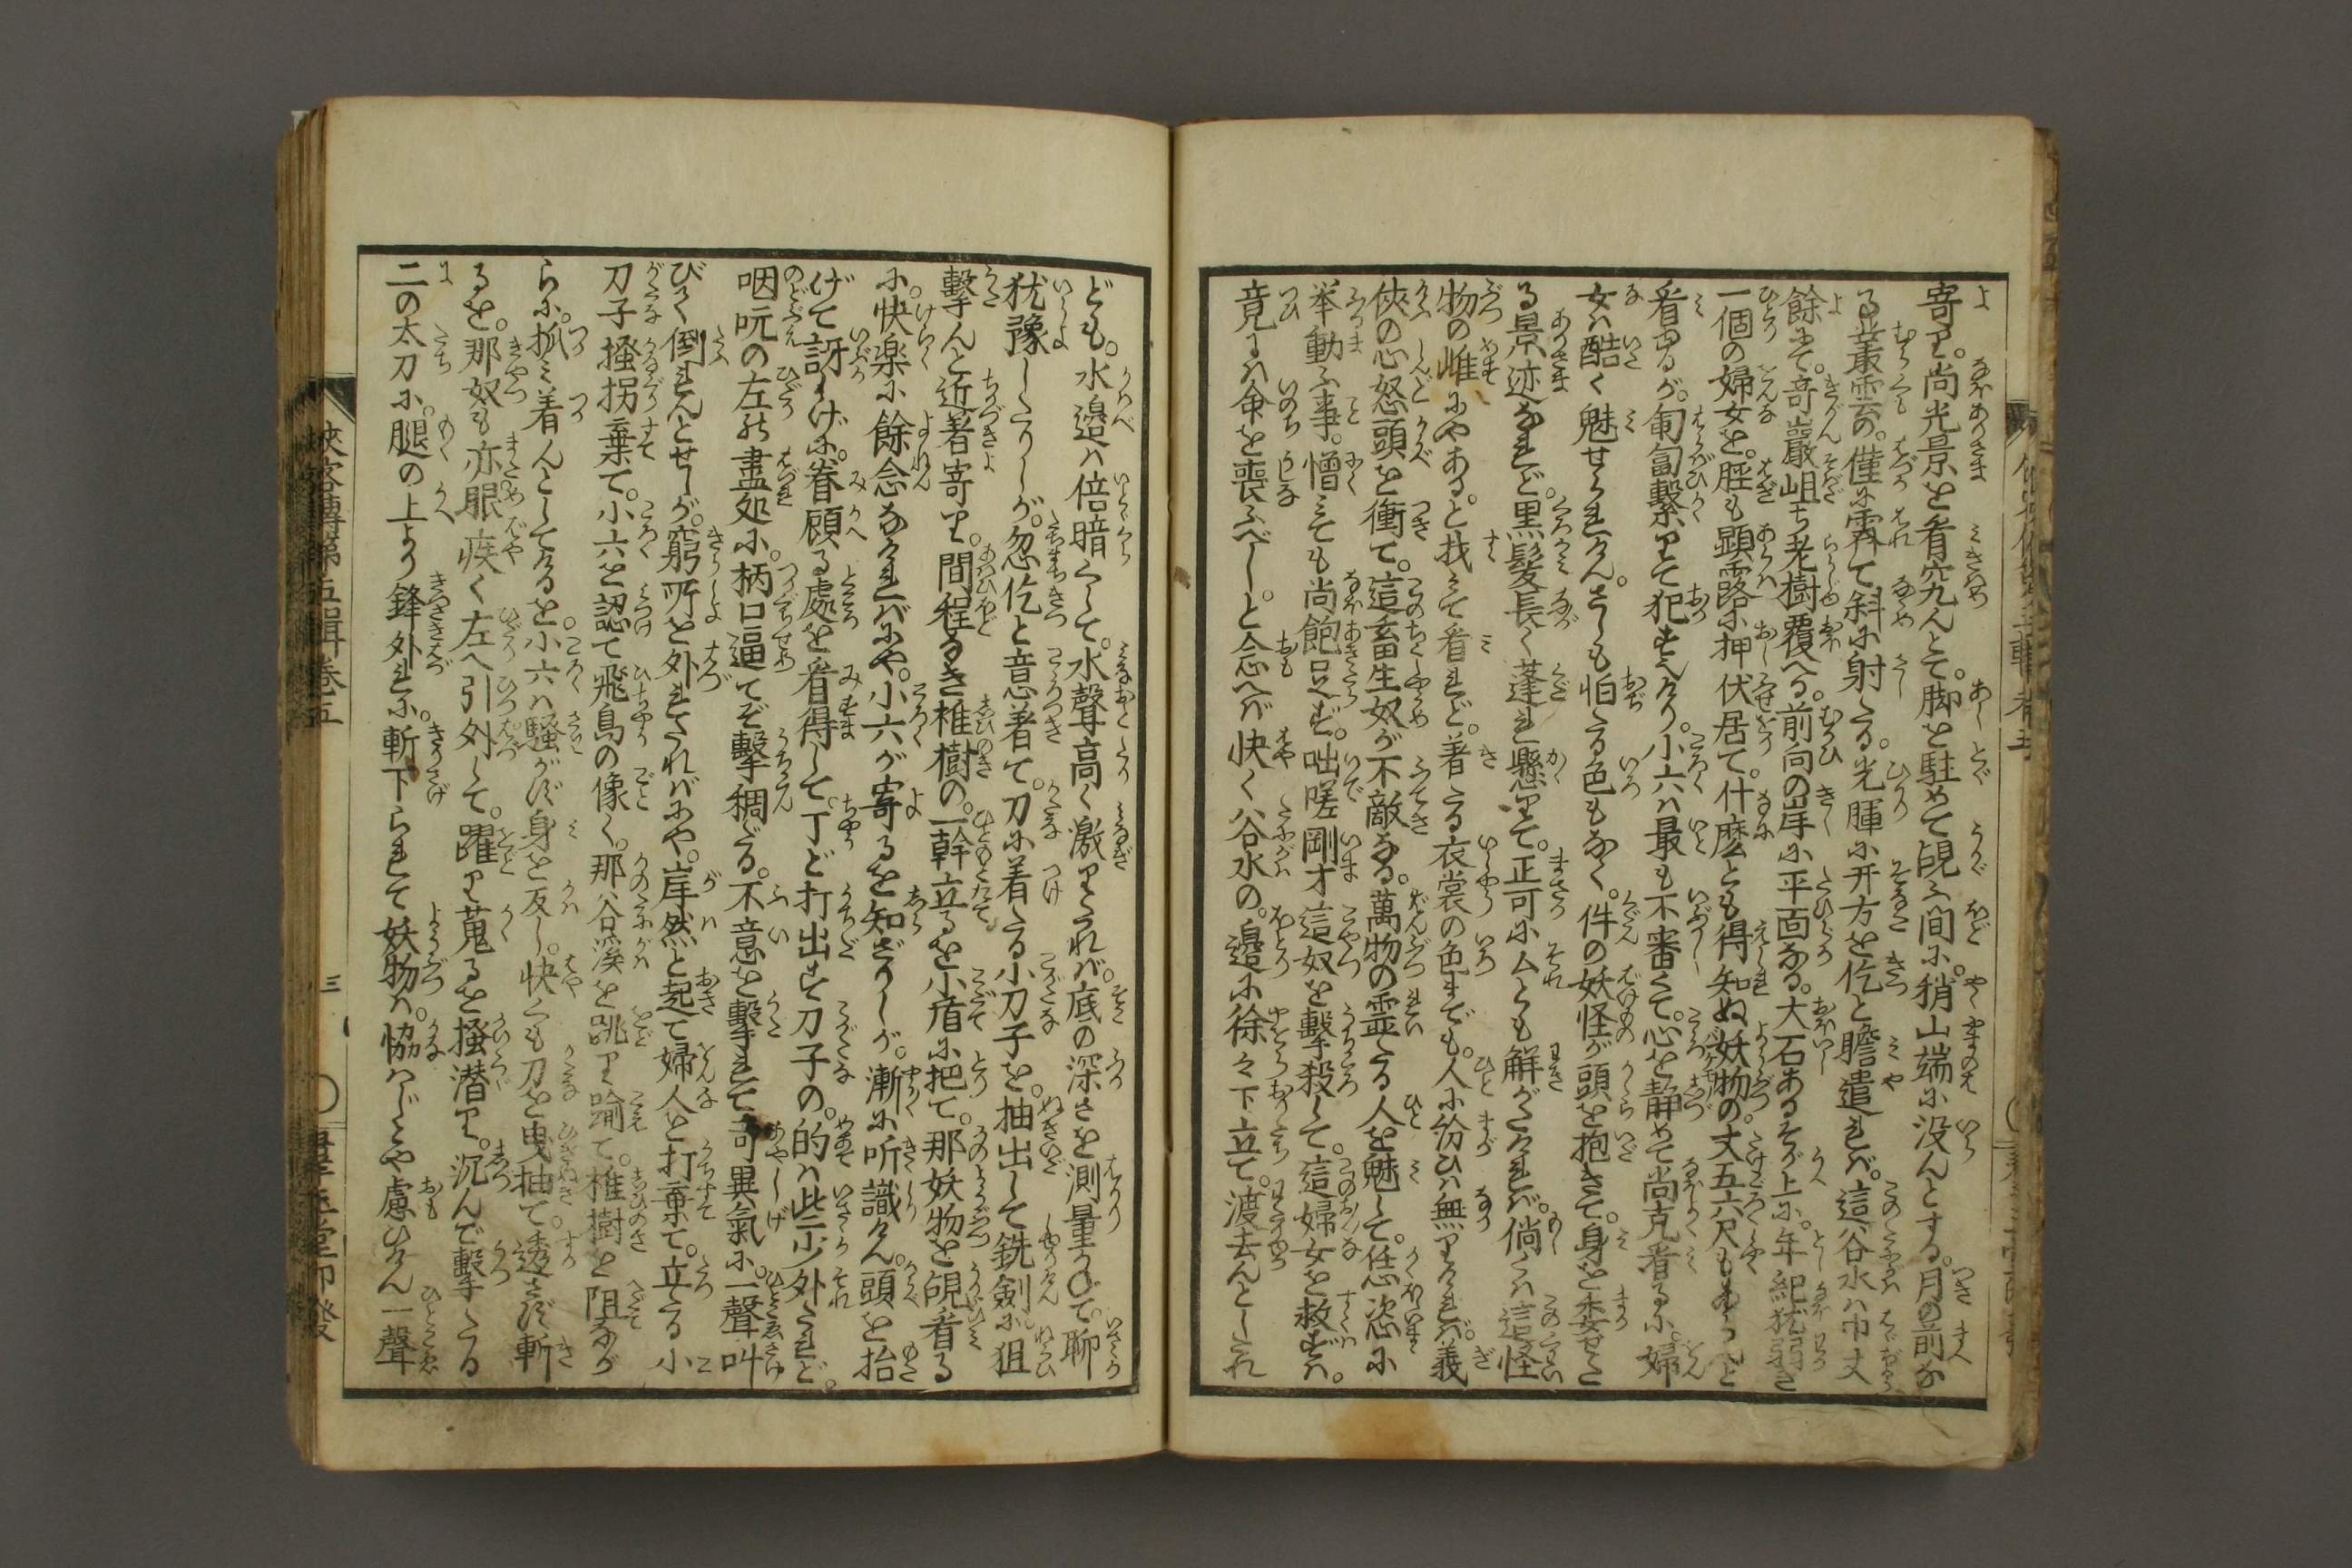 寄り。尚光景を看究んとて。脚を駐めて覘ふ間に。稍山端に没んとする。月の前な
る叢雲の。僅に霽て斜に射たる。光暉に开方を仡と瞻遣れば。這谷水は巾丈
餘にて。奇巖岨ち老樹覆へる。前向の岸に平面なる。大石あるそが上に。年紀猶弱き
一個の婦女を。脛も顕露に押伏居て。什麼とも得知ぬ妖物の。丈五六尺もあらんと
看ゆるが。匍匐繋りて犯すめり。小六は最も不審くて。心を静めて尚克看るに。婦
女は酷く魅せられけん。さしも怕たる色もなく。件の妖怪が頭を抱きて。身を委せた
る景迹なれど。黒髪長く蓬れ懸りて。正可にムとも解がたければ。倘くは這怪
物の雌にやある。と找みて看れど。著たる衣裳の色までも。人に紛ひは無りければ。義
侠の心怒頭を衝て。這畜生奴が不敵なる。萬物の霊たる人を魅して。恁恣に
挙動ふ事。憎みても尚飽足ず。咄嗟剛才這奴を撃殺して。這婦女を救ずは。
竟には命を喪ふべし。と念へば快く谷水の。邉に徐々下立て。渡去んとしたれ
ども。水邉は倍暗くして。水聲高く激りうれば。底の深さを測量かねて。聊
猶豫したりしが。忽仡と意著て。刀に着たる小刀子を。抽出して銑鋧に狙
撃んと近著寄り。間程なき椎樹の。一幹立るを小盾に把て。那妖物を覘看る
に。快楽に餘念なければにや。小六が寄るを知ざりしが。漸に听識けん。頭を抬
げて訝しげに。眷顧る處を看得して。丁ど打出す刀子の。的は些少外たれど。
咽吭の左の盡処に。柄口逼てぞ撃稠だる。不意を撃れて奇異氣に。一聲叫
びて倒れんとせしが。窮所を外れたればにや。岸然と起て婦人を打棄て。立たる小
刀子掻拐棄て。小六を認て飛鳥の像く。那谷溪を跳り踰て。椎樹を阻ながら
らに。抓み着んとしてけるを。小六は騒がず身を反し。快くも刀を曳抽て。透さず斬
るを。那奴も亦眼疾く左へ引外して。躍り蒐るを掻潜り。沉んで撃たる
二の太刀に。腿の上より鋒外れに。斬下られて妖物は。恊はじとや慮ひけん一聲
侠客傳第五輯巻五
三
群玉堂印發